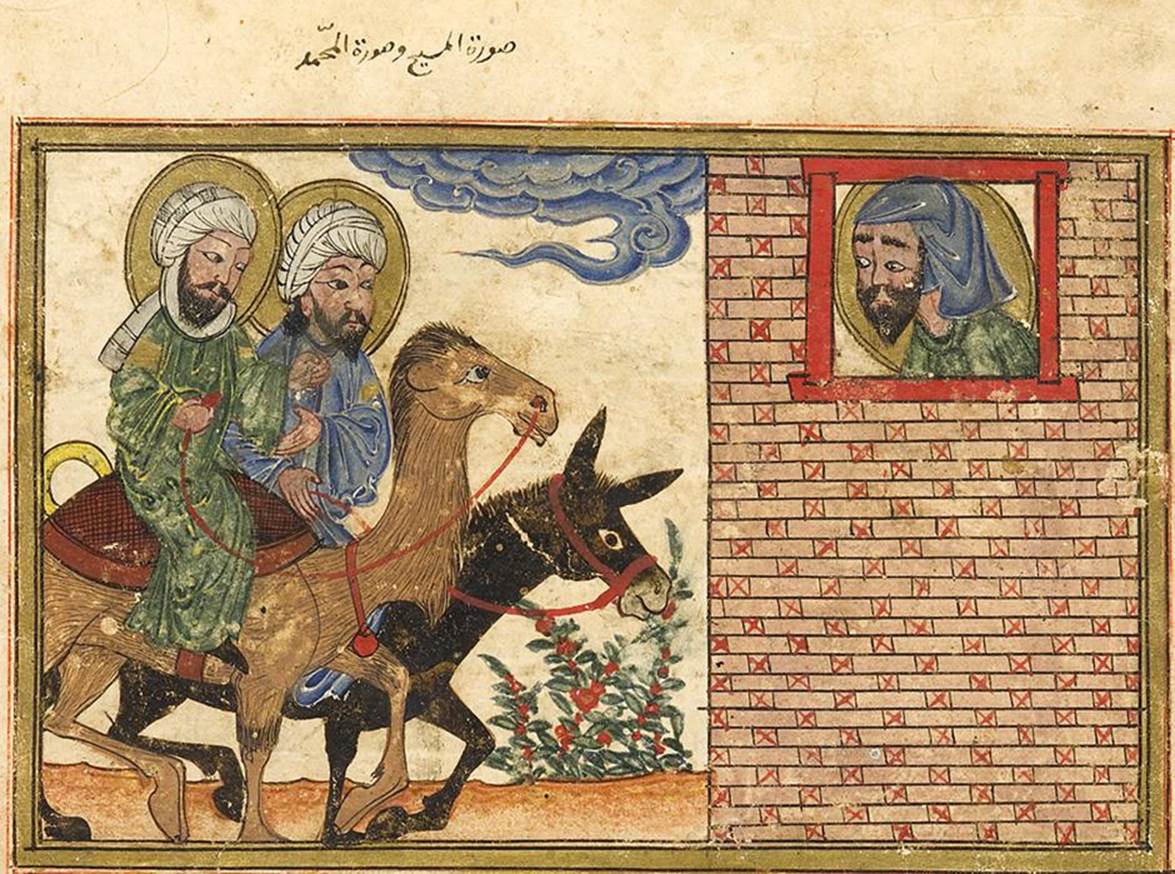 صورة المسيح وصورة المحمّد